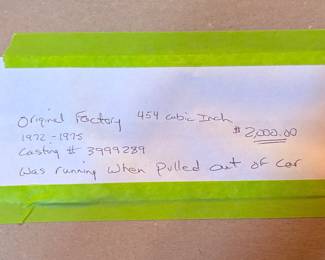 Original Factory 454 cubic Inch
$2,000.00
1972-1975
Casting # 3999289
Was running when pulled out of car